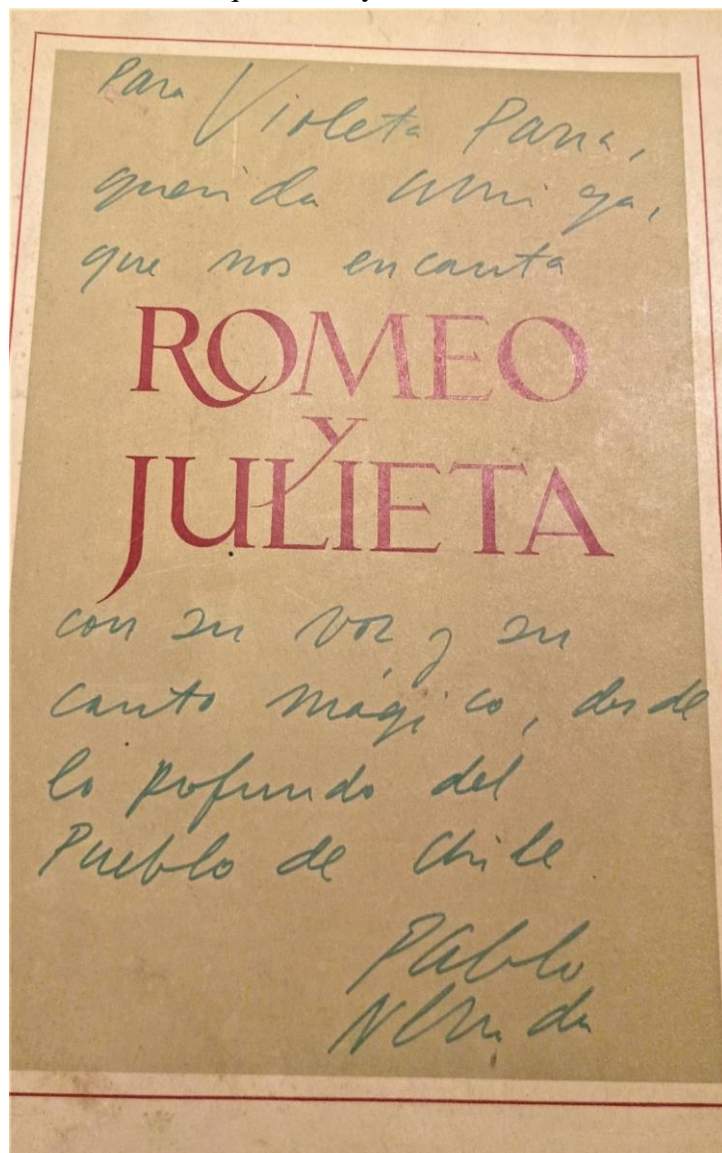 Para Violeta Parra,
querida amiga,
que nos encanta
ROMEO
Y
JULIETA
con su voz y su
canto mágico, desde
lo profundo del
Pueblo de Chile
Pablo
Neruda